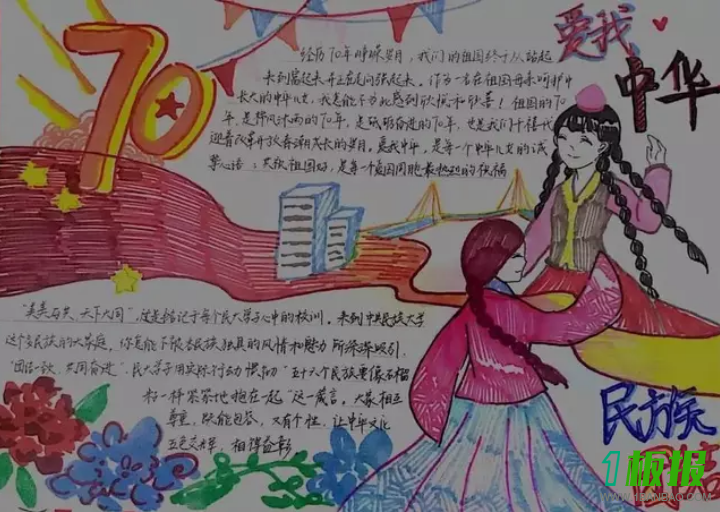 70
爱我
中华
经历70年峥嵘岁月，我们的祖国终于从站起
来到富起来并正在走向强起来。作为一名在祖国母亲呵护中
长大的中华儿女，我是能不为此感到欣慰和欣喜！祖国的70
年，是栉风沐雨的70年，是砥砺奋进的70年，也是我们十禧代
迎着改革开放春潮成长的岁月。爱我中华，是每一个中华儿女的
心语：天佑祖国好，是每一个爱国同胞最热烈的祝福
"美美与共 天下大同"，这是铭记于每个民大学子心中的校训。来到中央民族大学
这个多民族的大家庭，你总能不限各民族独具的风情和魅力所深深吸引，
"团结一致、共同奋进"，民大学子用实际行动 "五十六个民族要像石榴
籽一样紧紧地抱在一起"这一箴言。大家相互
尊重，既能包容，又有个性，让中华文化
五色交辉，相得益彰
民族
团结
1板报
WWW.1BANBAO.COM